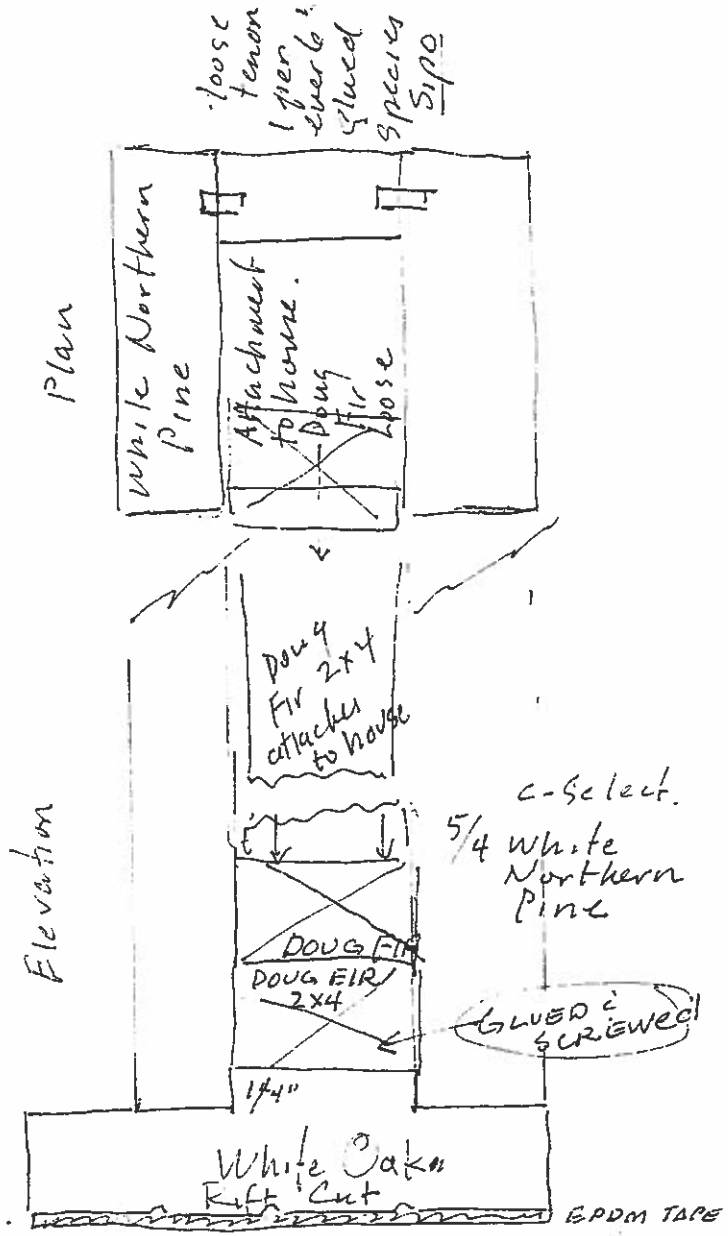 loose
tenon
1 per
ever 6"
glued
Species
Sipo
Plan
White Northern
Pine
Attachment
to house.
Doug
Fir
Loose
Doug
Fir 2x4
attaches
to house
Elevation
c-Select.
5/4 White
Northern
Pine
DOUG FIR
DOUG FIR
2x4
GLUED &
SCREWED
1/4"
White Oak
Rift Cut
EPDM TAPE